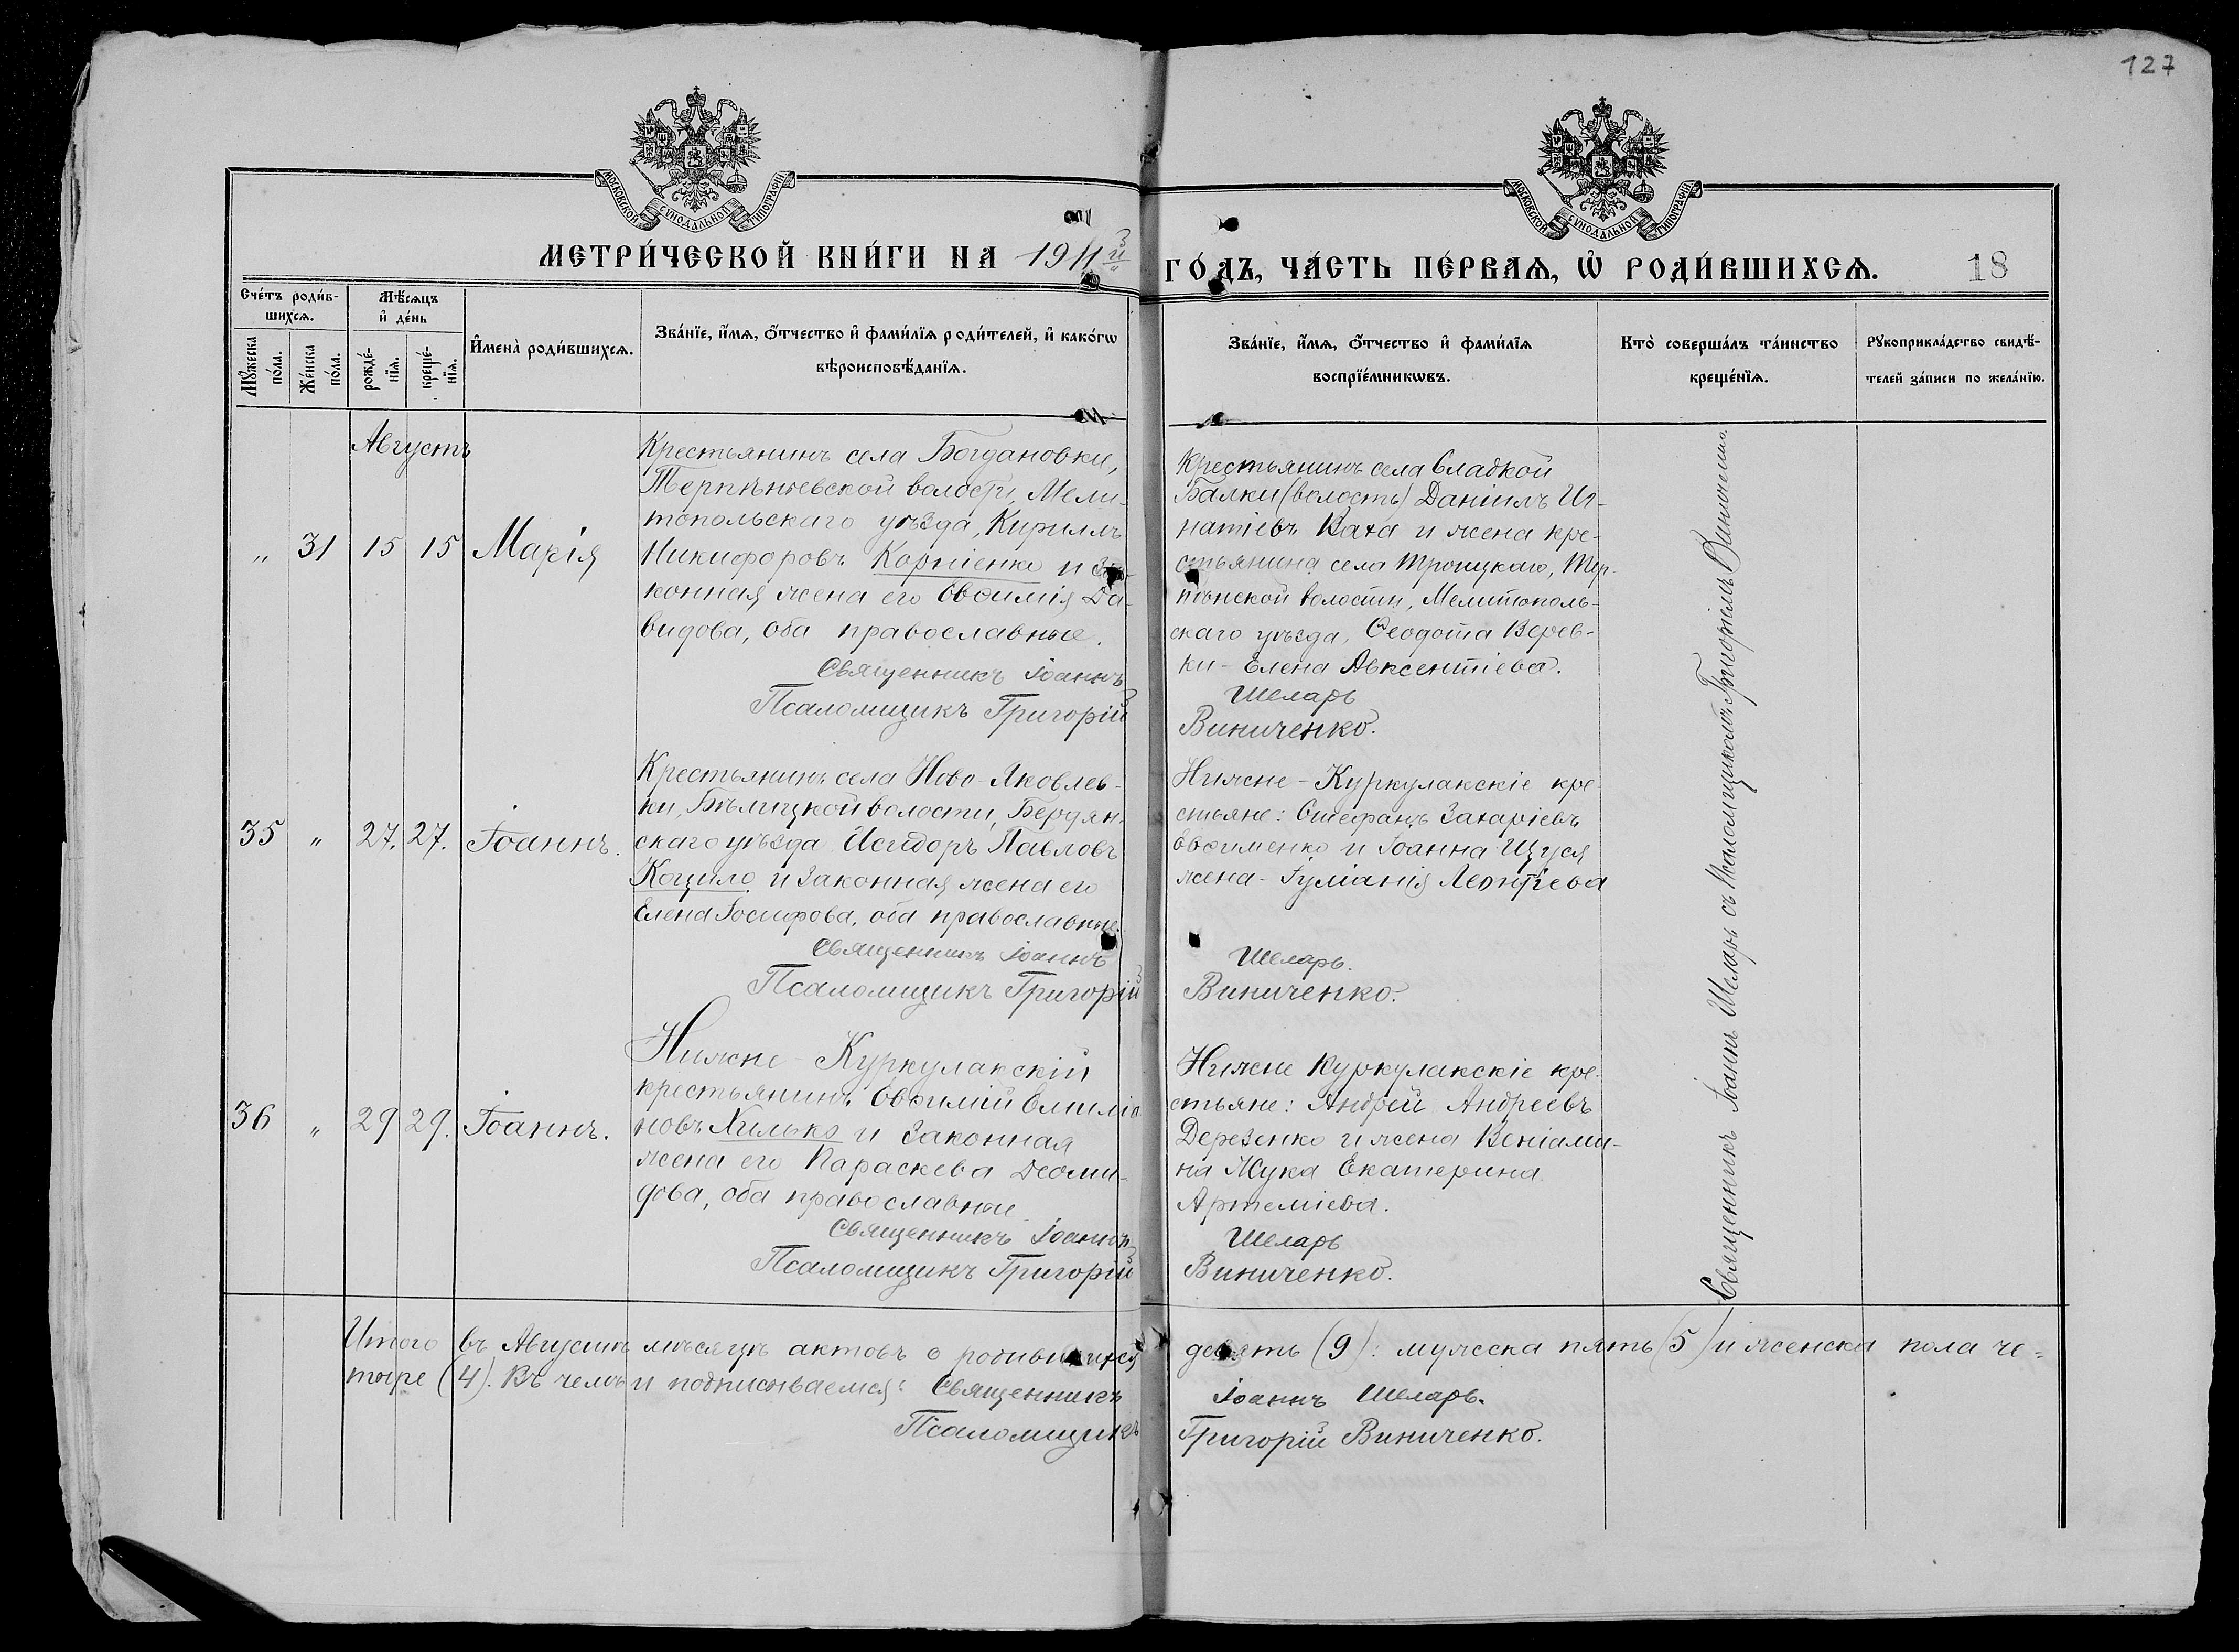 127
МОСКОВСКОЙ СУНОДАЛЬНОЙ ТИПОГРАФІИ
МОСКОВСКОЙ СУНОДАЛЬНОЙ ТИПОГРАФІИ
МЕТРИ́ЧЕСКОЙ КНИ́ГИ НА 1911й
ГО́ДЪ, ЧА́СТЬ ПЕ́РВАѦ, Ѡ҆ РОДИ́ВШИХСѦ.
18
Сче́тъ роди́в-
шихсѧ.
Мѹ́жеска по́ла.
Же́нска по́ла.
Мѣ́сѧцъ
и҆ де́нь
рожде́-
нїѧ.
креще́-
нїѧ.
И҆мена̀ роди́вшихсѧ.
Зва́нїе, и҆́мѧ, ѻ҆́тчество и҆ фами́лїѧ роди́телей, и҆ како́гѡ
вѣроисповѣ́данїѧ.
Зва́нїе, и҆́мѧ, ѻ҆́тчество и҆ фами́лїѧ
воспрїе́мникѡвъ.
Кто̀ соверша́лъ та́инство
креще́нїѧ.
Рѹкоприкла́дство свидѣ́-
телей за́писи по жела́нїю.
Августъ
„ 31 15 15 Марія
Крестьянинъ села Богдановки,
Терпѣньевской волости, Мели-
топольскаго уѣзда, Кириллъ
Никифоровъ Корніенко и за-
конная жена его Евѳимія Да-
видова, оба православные.
Священникъ Іоаннъ
Псаломщикъ Григорій
Крестьянинъ села Сладкой
Балки (волость) Даніилъ Иг-
натіевъ Ваха и жена кре-
стьянина села Троицкаго, Тер-
пѣнской волости, Мелитополь-
скаго уѣзда, Ѳеодота Верев-
ки - Елена Авксентіева.
Шеларь
Виниченко.
35 „ 27. 27. Іоаннъ.
Крестьянинъ села Ново-Яковлев-
ки, Бѣлицкой волости, Бердян-
скаго уѣзда Исидоръ Павловъ
Коцило и законная жена его
Елена Іосифова, оба православные.
Священникъ Іоаннъ
Псаломщикъ Григорій
Нижне-Куркулакскіе кре-
стьяне: Стефанъ Захаріевъ
Евѳименко и Іоанна Щуся
жена - Іуліанія Леонтіева
Шеларь.
Виниченко.
36 „ 29 29. Іоаннъ.
Нижне-Куркулакскій
крестьянинъ Евѳимій Емиліа-
новъ Хилько и законная
жена его Параскева Деоми-
дова, оба православные
Священникъ Іоаннъ
Псаломщикъ Григорій
Нижне Куркулакскіе кре-
стьяне: Андрей Андреевъ
Дерезенко и жена Веніами-
на Жука Екатерина
Артеміева.
Шеларь
Виниченко.
Священникъ Іоаннъ Шеларь съ псаломщикомъ Григоріемъ Виниченко.
Итого въ Августѣ мѣсяцѣ актовъ о родившихся девять (9): мужеска пять (5) и женска пола че-
тыре (4). Въ чемъ и подписываемся: Священникъ Іоаннъ Шеларь.
Псаломщикъ Григорій Виниченко.